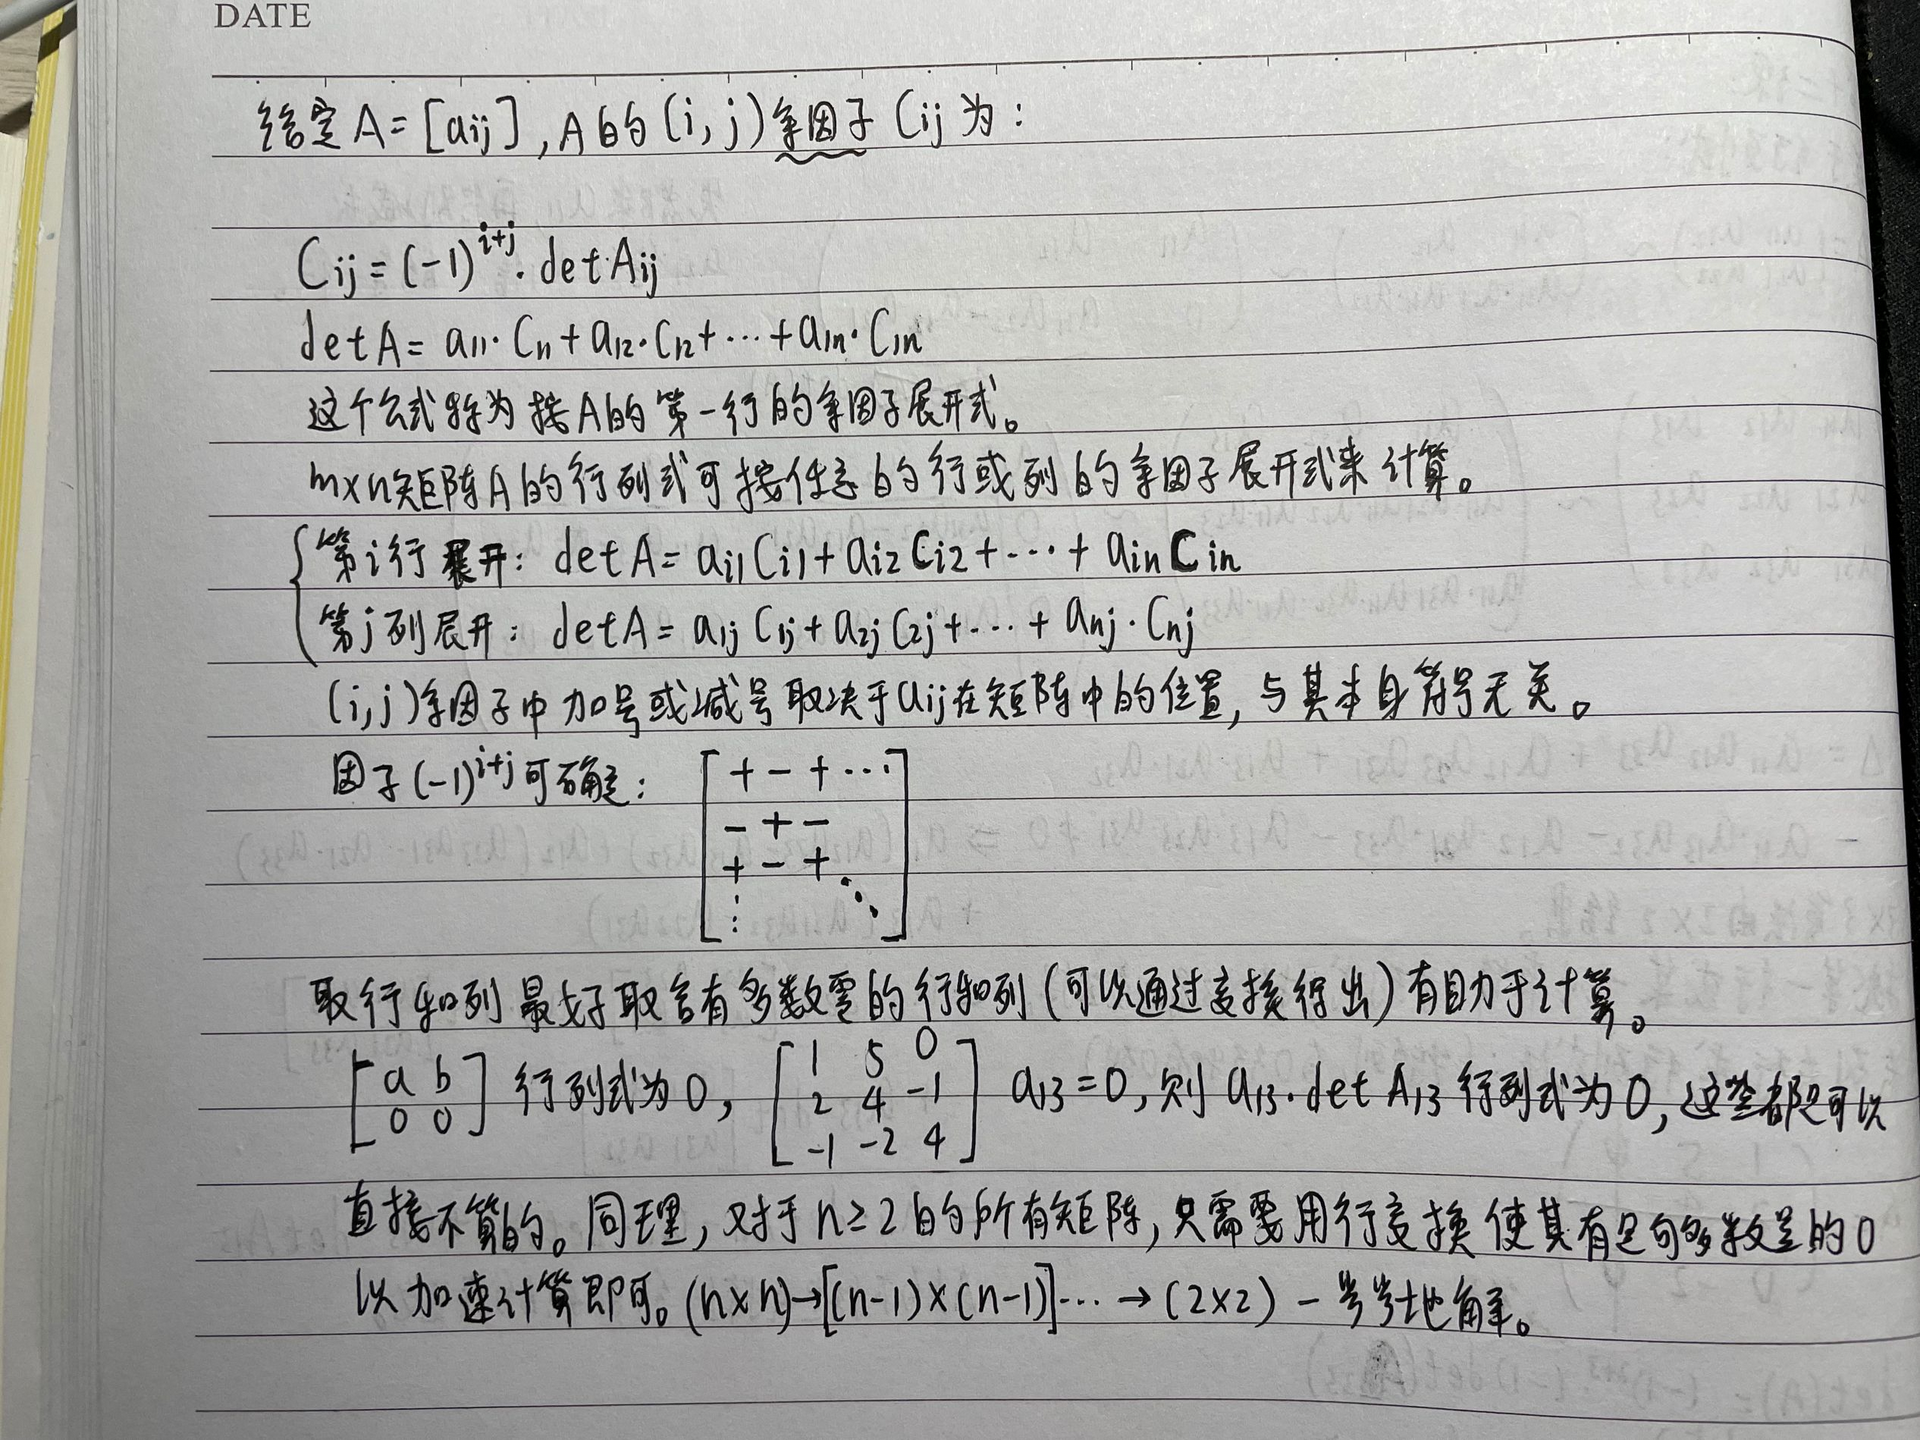 DATE
给定A=[aij],A的(i,j)余因子Cij为:
Cij=(-1)^{i+j}·detAij
detA=a11·C11+a12·C12+···+a1n·C1n
这个公式称为按A的第一行的余因子展开式。
m×n矩阵A的行列式可按任意的行或列的余因子展开式来计算。
第i行展开: detA=ai1Ci1+ai2Ci2+···+ainCin
第j列展开: detA=a1jC1j+a2jC2j+···+anj·Cnj
(i,j)余因子中加号或减号取决于aij在矩阵中的位置,与其本身符号无关。
因子(-1)^{i+j}可确定: [+ - + ···
- + -
+ - + ⋱
⋮ ]
取行和列最好取含有多数零的行和列(可以通过变换得出)有助于计算。
[a b
0 0] 行列式为0, [1 5 0
2 4 -1
-1 -2 4] a13=0,则a13·detA13行列式为0,这些都是可以
直接不算的。同理,对于n≥2的所有矩阵,只需要用行变换使其有足够多数量的0
以加速计算即可。(n×n)→[(n-1)×(n-1)]···→(2×2)一步步地解。